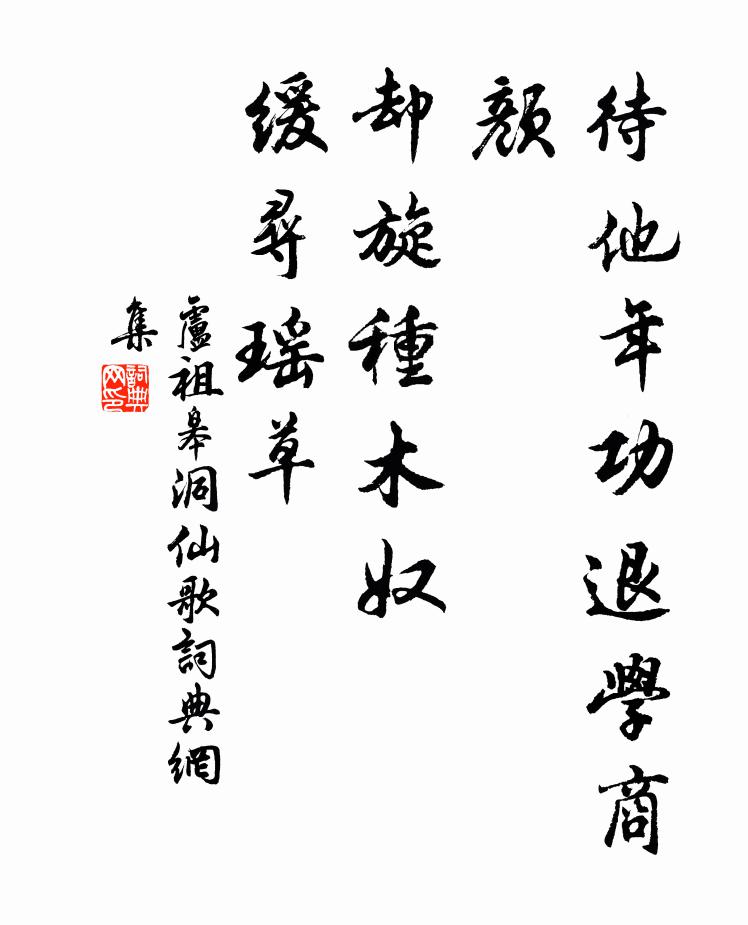 待他年功退學商
顏
却旋種木奴
緩尋瑶草
盧祖皋洞仙歌詞典網
集
詞典
网印